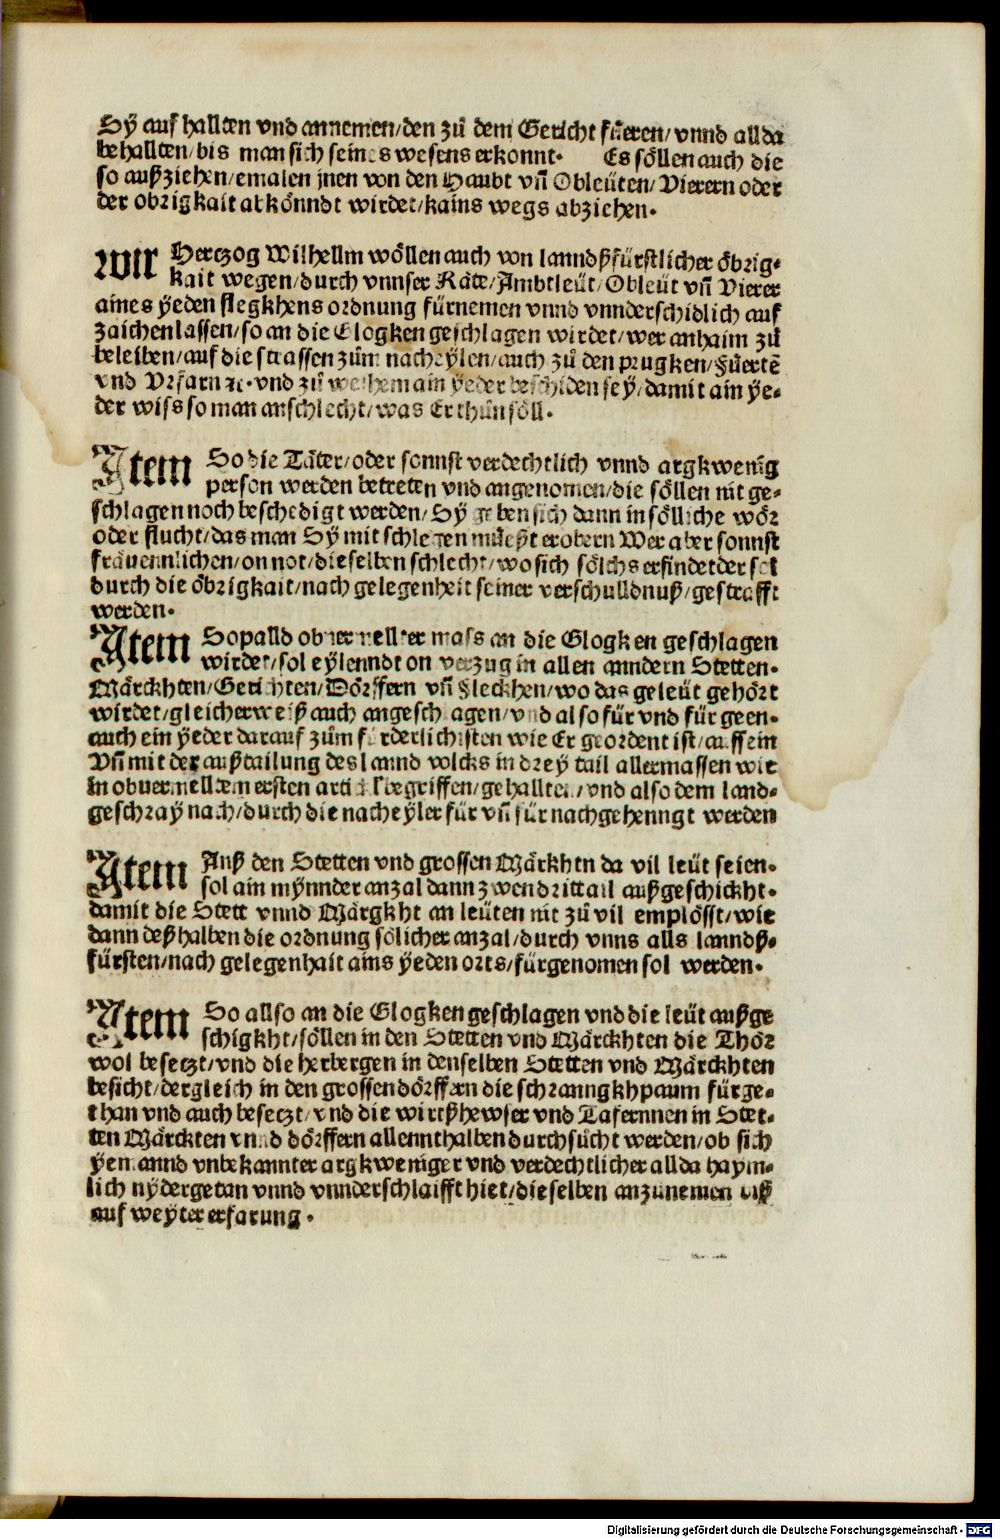 Sÿ auf hallten vnd annemen/den zů dem Gericht fůeren/vnnd allda
behallten/bis man sich seines wesens erkonnt. Es söllen auch die
so außziehen/emalen jnen von den Haubt vñ Obleüten/Vierern oder
der obrigkait abkönndt wirdet/kains wegs abziehen.
Wir Hertzog Wilhellm wöllen auch von lanndßfürstlicher öbrig-
kait wegen/durch vnnser Räte/Ambtleüt/Obleüt vñ Vierer
aines ÿeden flegkhens ordnung fürnemen vnnd vnnderschidlich auf
zaichen lassen/so an die Glogken geschlagen wirdet/wer anhaim zů
beleiben/auf die strassen zům nacheylen/auch zů den prugken/Fůertē
vnd Vrfarn ꝛc. vnd zů welhem ain ÿeder beschiden seÿ/damit ain ÿe-
der wiss so man anschlecht/was Er thůn söll.
Item So die Täter/oder sonnst verdechtlich vnnd argkwenig
person werden betreten vnd angenomen/die söllen nit ge-
schlagen noch beschedigt werden/Sÿ geben sich dann in sölliche wör
oder flucht/das man Sÿ mit schlegen müeßt erobern Wer aber sonnst
fräuennlichen/on not/dieselben schlecht/wo sich sölchs erfindet der sol
durch die öbrigkait/nach gelegenheit seiner verschulldnuß/gestrafft
werden.
Item Sopalld obuermellter mass an die Glogken geschlagen
wirdet/sol eylenndt on verzug in allen anndern Stetten.
Märckhten/Gerichten/Dörffern vñ Fleckhen/wo das geleüt gehört
wirdet/gleicherweiß auch angeschlagen/vnd also für vnd für geen.
auch ein ÿeder darauf zům fürderlichisten wie Er geordent ist/auf sein
Vñ mit der außtailung des lannd volcks in dreÿ tail allermassen wie
in obuermelltem ersten artickl begriffen/gehallten/vnd also dem land-
geschray nach/durch die nacheyler für vñ für nachgehenngt werden
Item Auß den Stetten vnd grossen Märkhtn da vil leüt seien.
sol ain mÿnnder anzal dann zwen drittail außgeschickht.
damit die Stett vnnd Märgkht an leüten nit zů vil emplösst/wie
dann deßhalben die ordnung sölicher anzal/durch vnns alls lanndß-
fürsten/nach gelegenhait ains ÿeden orts/fürgenomen sol werden.
Item So allso an die Glogken geschlagen vnd die leüt außge
schigkht/söllen in den Stetten vnd Märckhten die Thör
wol besetzt/vnd die herbergen in denselben Stetten vnd Märckhten
besicht/dergleich in den grossen dörffern die schranngkhpaum fürge-
than vnd auch besetzt/vnd die wirtßhewser vnd Tafernnen in Stet-
ten Märckten vnnd dörffern allennthalben durchsůcht werden/ob sich
ÿemannd vnbekannter argkweniger vnd verdechtlicher allda haym-
lich nydergetan vnnd vnnderschlaifft hiet/dieselben anzunemen biß
auf weÿter erfarung.
Digitalisierung gefördert durch die Deutsche Forschungsgemeinschaft - DFG